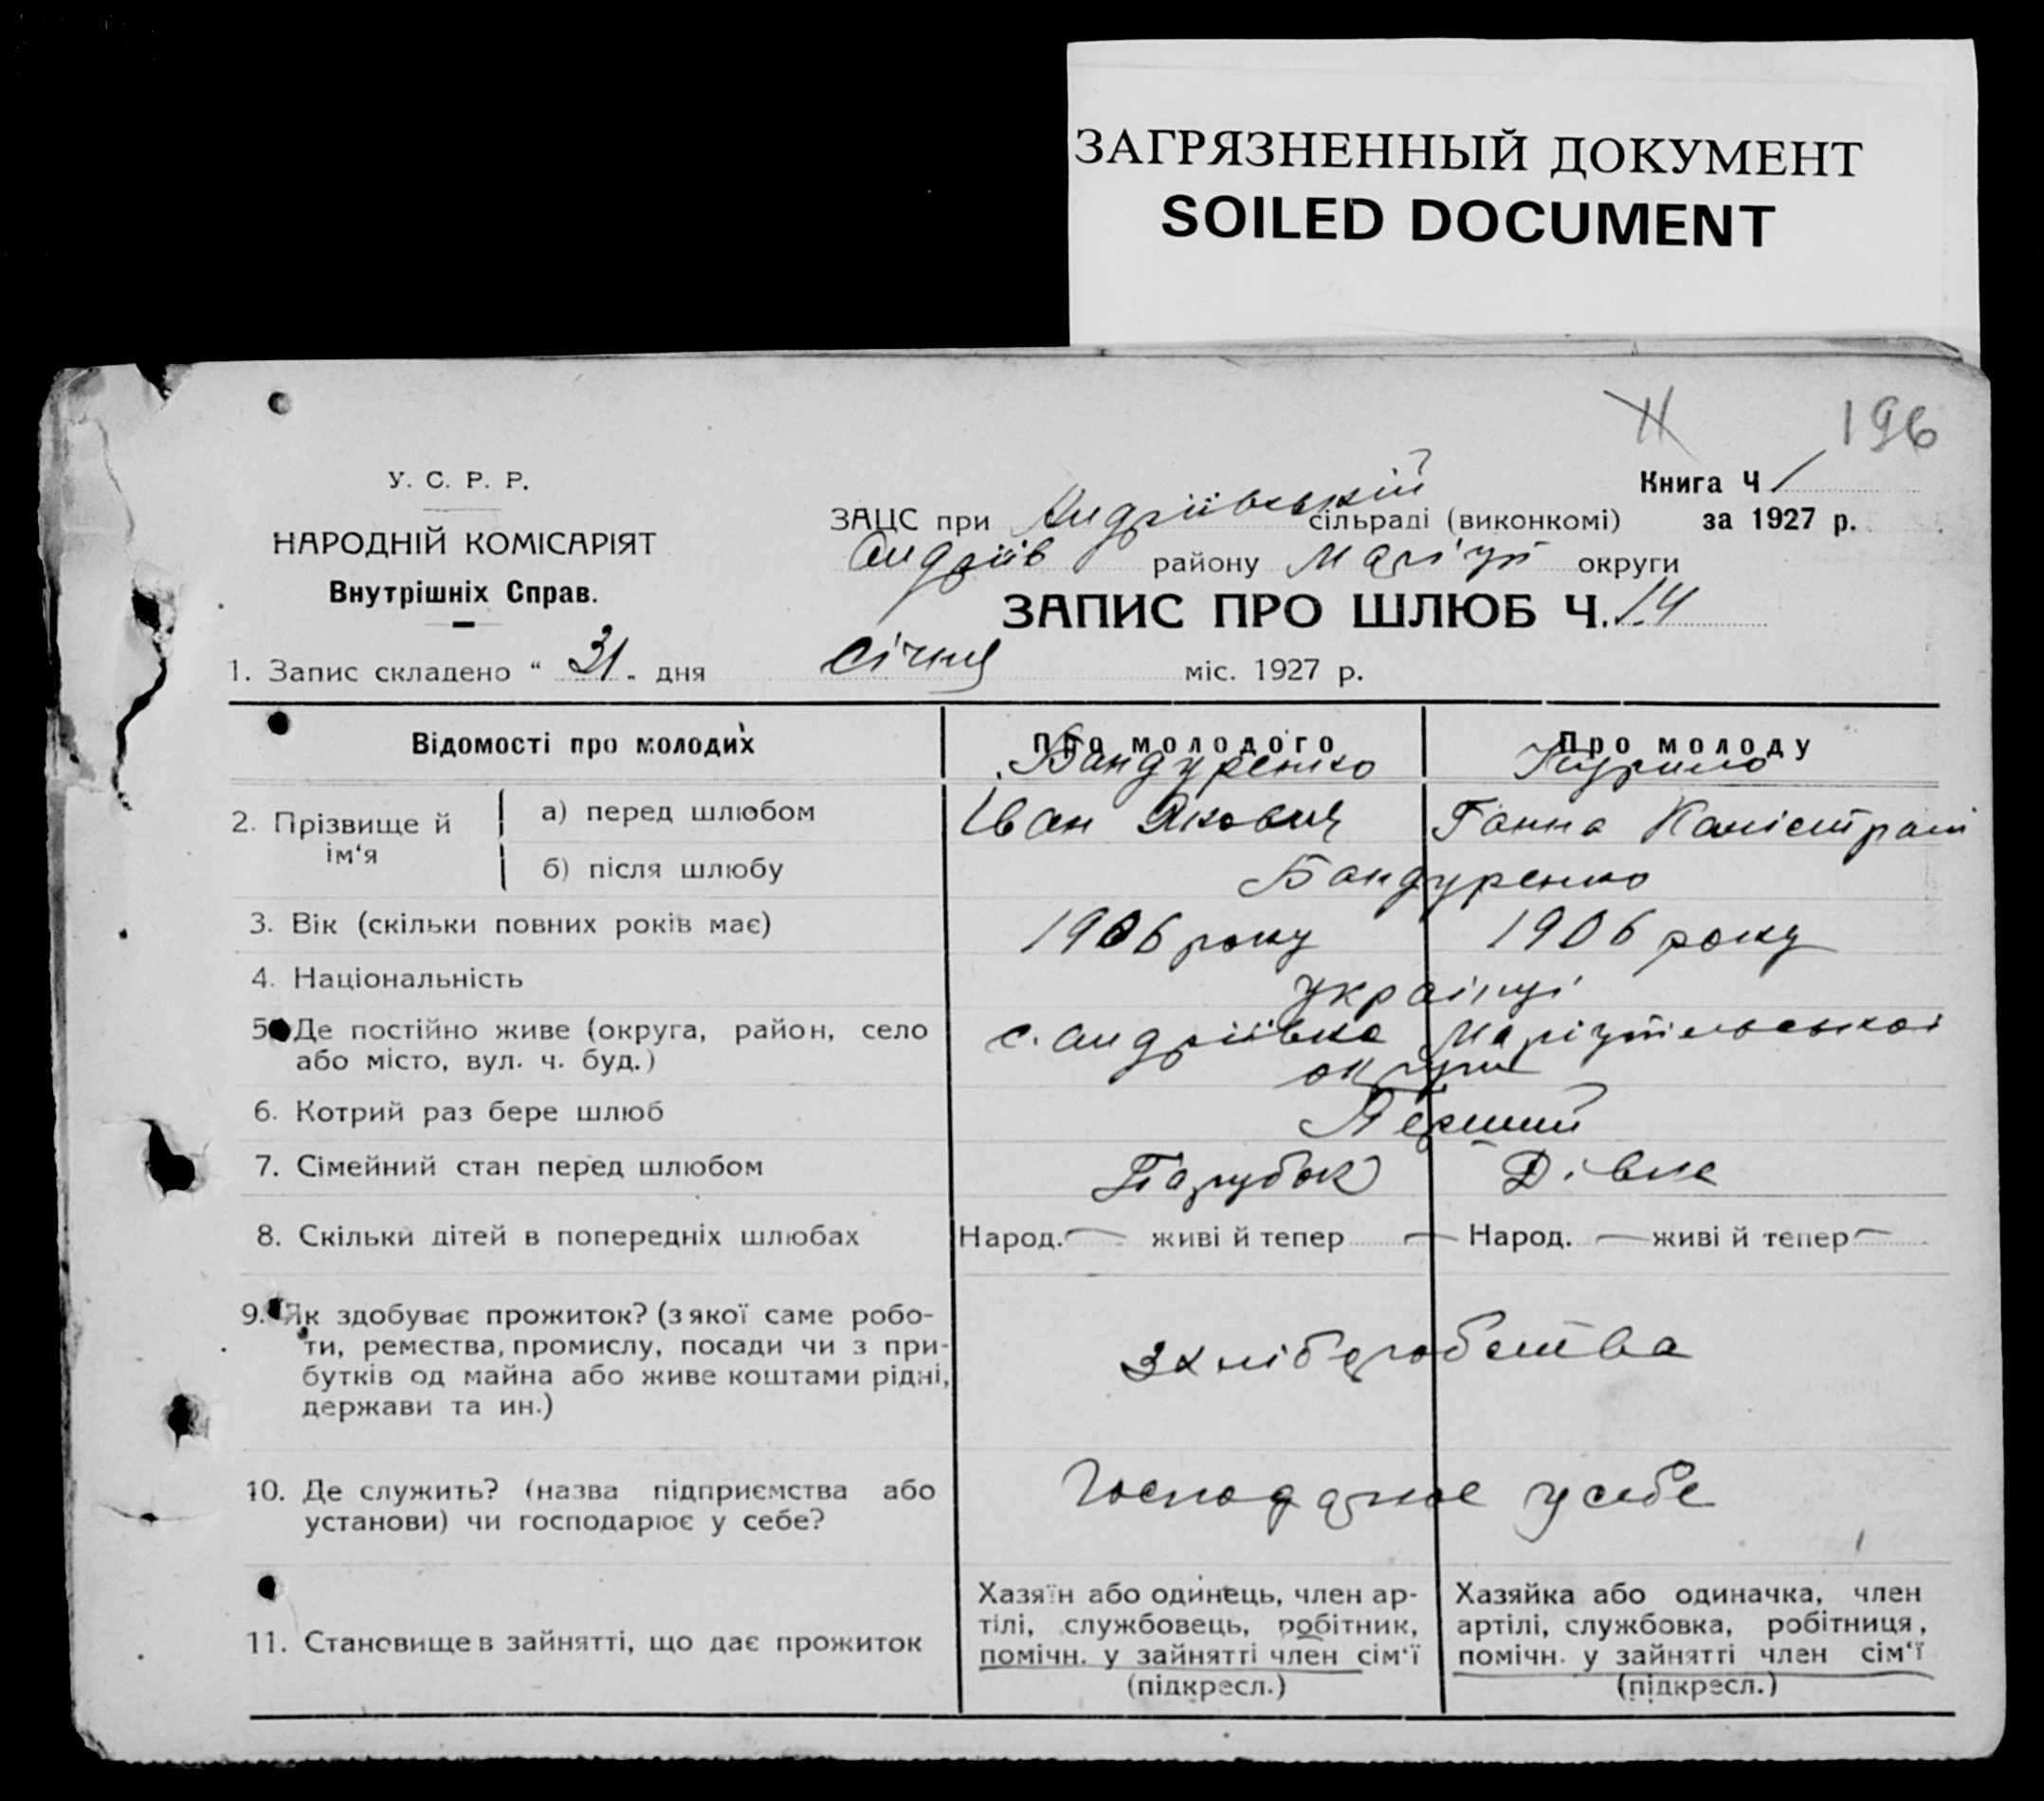 ЗАГРЯЗНЕННЫЙ ДОКУМЕНТ
SOILED DOCUMENT
196
У. С. Р. Р.
НАРОДНІЙ КОМІСАРІЯТ
Внутрішніх Справ.
Книга Ч 1
за 1927 р.
ЗАЦС при Андріївській сільраді (виконкомі)
Андріїв району Маріуп округи
ЗАПИС ПРО ШЛЮБ Ч. 14
1. Запис складено „ 31 „ дня січня міс. 1927 р.
Відомості про молодих
Про молодого
Про молоду
2. Прізвище й ім‘я
а) перед шлюбом
Бандуренко
Іван Якович
Ганна Каністрат
б) після шлюбу
Бандуренко
3. Вік (скільки повних років має)
1906 року
1906 року
4. Національність
українці
5. Де постійно живе (округа, район, село
або місто, вул. ч. буд.)
с. Андріївка Маріупільської
округи
6. Котрий раз бере шлюб
Перший
7. Сімейний стан перед шлюбом
Парубок
Дівка
8. Скільки дітей в попередніх шлюбах
Народ. — живі й тепер —
Народ. — живі й тепер —
9. Як здобуває прожиток? (з якої саме робо-
ти, ремества, промислу, посади чи з при-
бутків од майна або живе коштами рідні,
держави та ин.)
з хліборобства
10. Де служить? (назва підприємства або
установи) чи господарює у себе?
Господарює у себе
11. Становище в зайнятті, що дає прожиток
Хазяїн або одинець, член ар-
тілі, службовець, робітник,
помічн. у зайнятті член сім‘ї
(підкресл.)
Хазяйка або одиначка, член
артілі, службовка, робітниця,
помічн. у зайнятті член сім‘ї
(підкресл.)